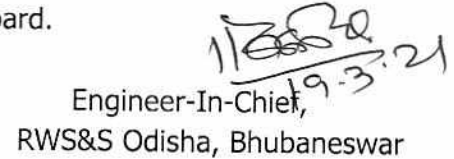 oard.
19.3.21
Engineer-In-Chief,
RWS&S Odisha, Bhubaneswar